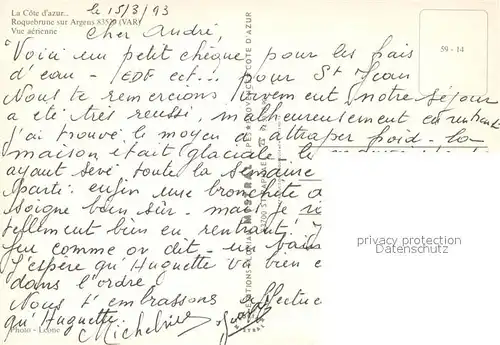 La Côte d'azur...
Roquebrune sur Argens 83520 (VAR)
Vue aérienne
59 - 14
le 15/3/93
Cher André,
Voici un petit chèque pour les frais
d'eau - EDF ect... pour St Jean
Nous te remercions vivement notre séjour
a été très réussi, malheureusement en rentrant
j'ai trouvé le moyen d'attraper froid - la
maison était glaciale - le
ayant sevé toute la semaine
parti: enfin une bronchite
soigne bien sûr - mais je
tellement bien en rentrant.
feu comme on dit - un bain
J'espère qu'Huguette va bien e
dans l'ordre.
Nous t'embrassons affectue
qu'Huguette.
Micheline
Photo - Leone
MISTRAL
privacy protection